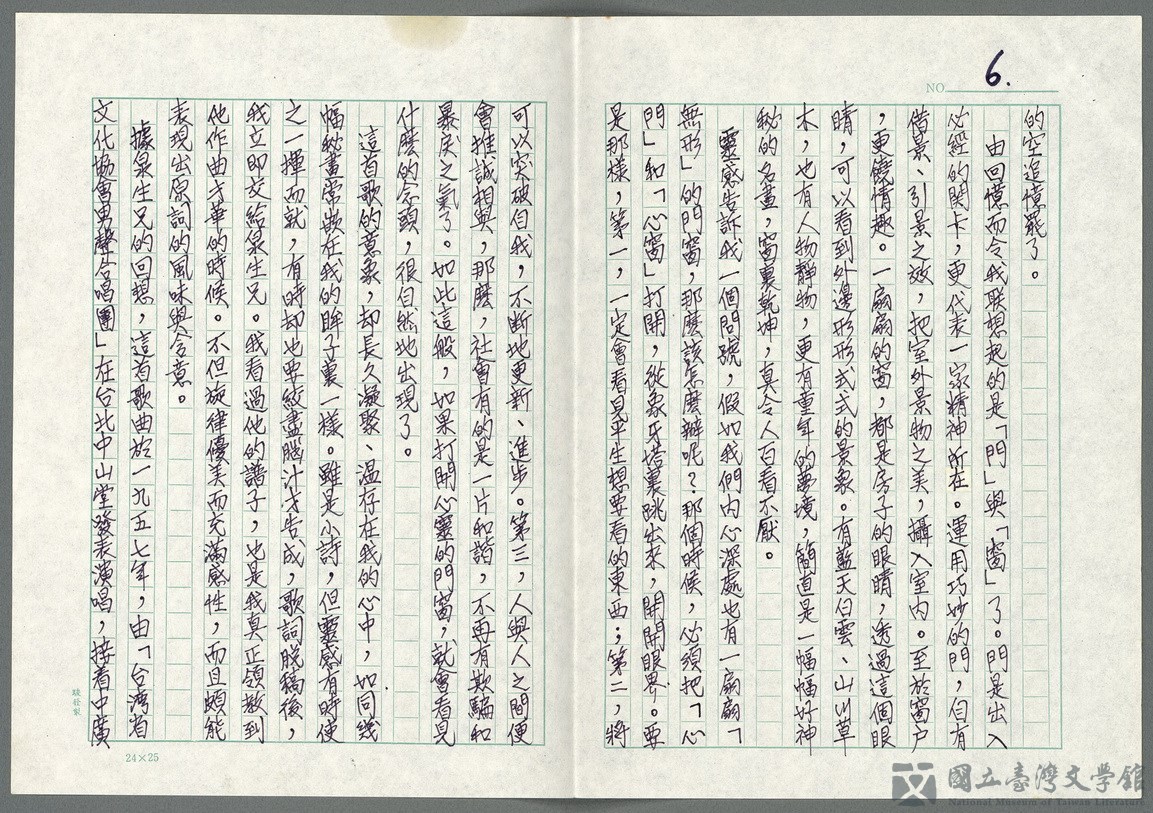 NO 6.
的空追憶罷了。
由回憶而令我联想起的是「門」與「窗」了。門是出入
必經的関卡，更代表一家精神所在。運用巧妙的門，自有
借景、引景之效，把室外景物之美，攝入室内。至於窗户
，更饒情趣。一扇扇的窗，都是房子的眼睛，透過這個眼
睛，可以看到外邊形形式式的景象。有藍天白雲、山川草
木，也有人物静物，更有童年的夢境，簡直是一幅幅好神
秘的名畫，窗裏乾坤，真令人百看不厭。
靈感告訴我一個問號，假如我們内心深處也有一扇扇「
無形」的門窗，那麽該怎麽辦呢？那個時候，必須把「心
門」和「心窗」打開，從象牙塔裏跳出來，開開眼界。要
是那樣，第一，一定會看見平生想要看的東西；第二，將
可以突破自我，不斷地更新、進步。第三，人與人之間便
會推誠相與，那麽，社會有的是一片和諧，不再有欺騙和
暴戾之氣了。如此這般，如果打開心靈的門窗，就會看見
什麽的念頭，很自然地出現了。
這首歌的意象，却長久凝聚、温存在我的心中，如同幾
幅秘畫常嵌在我的眸子裏一樣。雖是小詩，但靈感有時使
之一揮而就，有時却也要絞盡腦汁才告成，歌詞脱稿後，
我立即交給泉生兄。我看過他的譜子，也是我真正領教到
他作曲才華的時候。不但旋律優美而充滿感性，而且頗能
表現出原詞的風味與含意。
據泉生兄的回想，這首歌曲於一九五七年，由「台湾省
文化協會男聲合唱團」在台北中山堂發表演唱，接着中廣
24×25
國立臺灣文學館
National Museum of Taiwan Literature